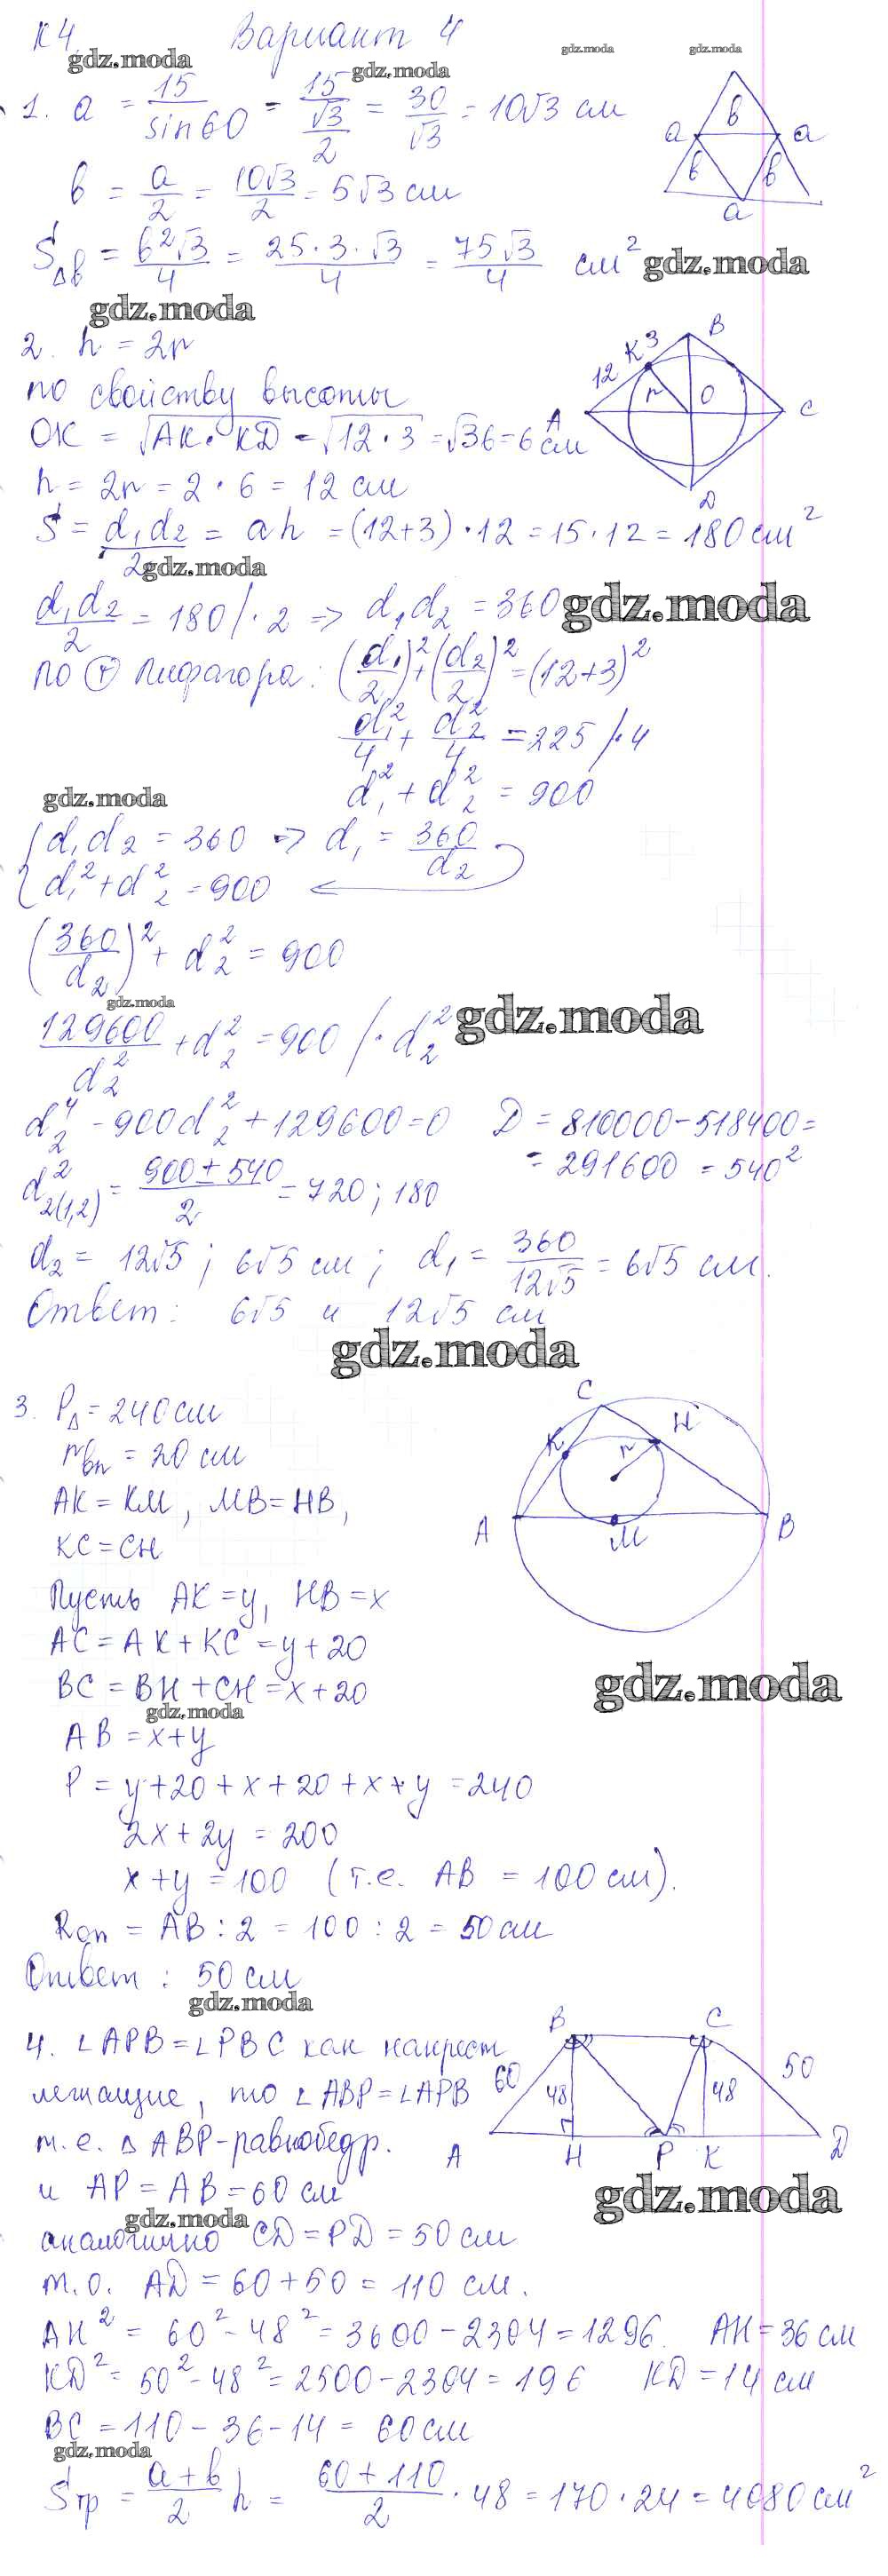 К4 Вариант 4
gdz.moda
gdz.moda
gdz.moda
gdz.moda
1. a = 15/sin60 = 15/(√3/2) = 30/√3 = 10√3 см
в = a/2 = 10√3/2 = 5√3 см
S△в = в²√3/4 = 25·3·√3/4 = 75√3/4 см²
a в a
в в
a
gdz.moda
gdz.moda
2. h = 2r
по свойству высоты
OK = √AK·KD = √12·3 = √36 = 6 см
h = 2r = 2·6 = 12 см
B
K 3
12
r O
A C
D
S = d₁d₂/2 = ah = (12+3)·12 = 15·12 = 180 см²
gdz.moda
d₁d₂/2 = 180 /·2 => d₁d₂ = 360
gdz.moda
по Т Пифагора: (d₁/2)² + (d₂/2)² = (12+3)²
d₁²/4 + d₂²/4 = 225 /·4
d₁² + d₂² = 900
gdz.moda
{ d₁d₂ = 360 => d₁ = 360/d₂
{ d₁² + d₂² = 900
(360/d₂)² + d₂² = 900
gdz.moda
129600/d₂² + d₂² = 900 /·d₂²
gdz.moda
d₂⁴ - 900d₂² + 129600 = 0 D = 810000 - 518400 =
= 291600 = 540²
d²₂(1,2) = 900 ± 540/2 = 720; 180
d₂ = 12√5; 6√5 см; d₁ = 360/12√5 = 6√5 см.
Ответ: 6√5 и 12√5 см
gdz.moda
3. P△ = 240 см
rвп = 20 см
AK = KM, MB = HB,
KC = CH
C
K H
r
A M B
Пусть AK = y, HB = x
AC = AK + KC = y + 20
BC = BH + CH = x + 20
gdz.moda
gdz.moda
AB = x + y
P = y + 20 + x + 20 + x + y = 240
2x + 2y = 200
x + y = 100 (т.е. AB = 100 см).
Rоп = AB : 2 = 100 : 2 = 50 см
Ответ: 50 см
gdz.moda
4. ∠APB = ∠PBC как накрест
лежащие, то ∠ABP = ∠APB
т.е. △ABP - равнобедр.
и AP = AB = 60 см
B C
60 48 48 50
A H P K D
gdz.moda
gdz.moda
аналогично CD = PD = 50 см
т.о. AD = 60 + 50 = 110 см.
AH² = 60² - 48² = 3600 - 2304 = 1296. AH = 36 см
KD² = 50² - 48² = 2500 - 2304 = 196 KD = 14 см
BC = 110 - 36 - 14 = 60 см
gdz.moda
Sтр = a + b/2 h = 60 + 110/2 · 48 = 170·24 = 4080 см²